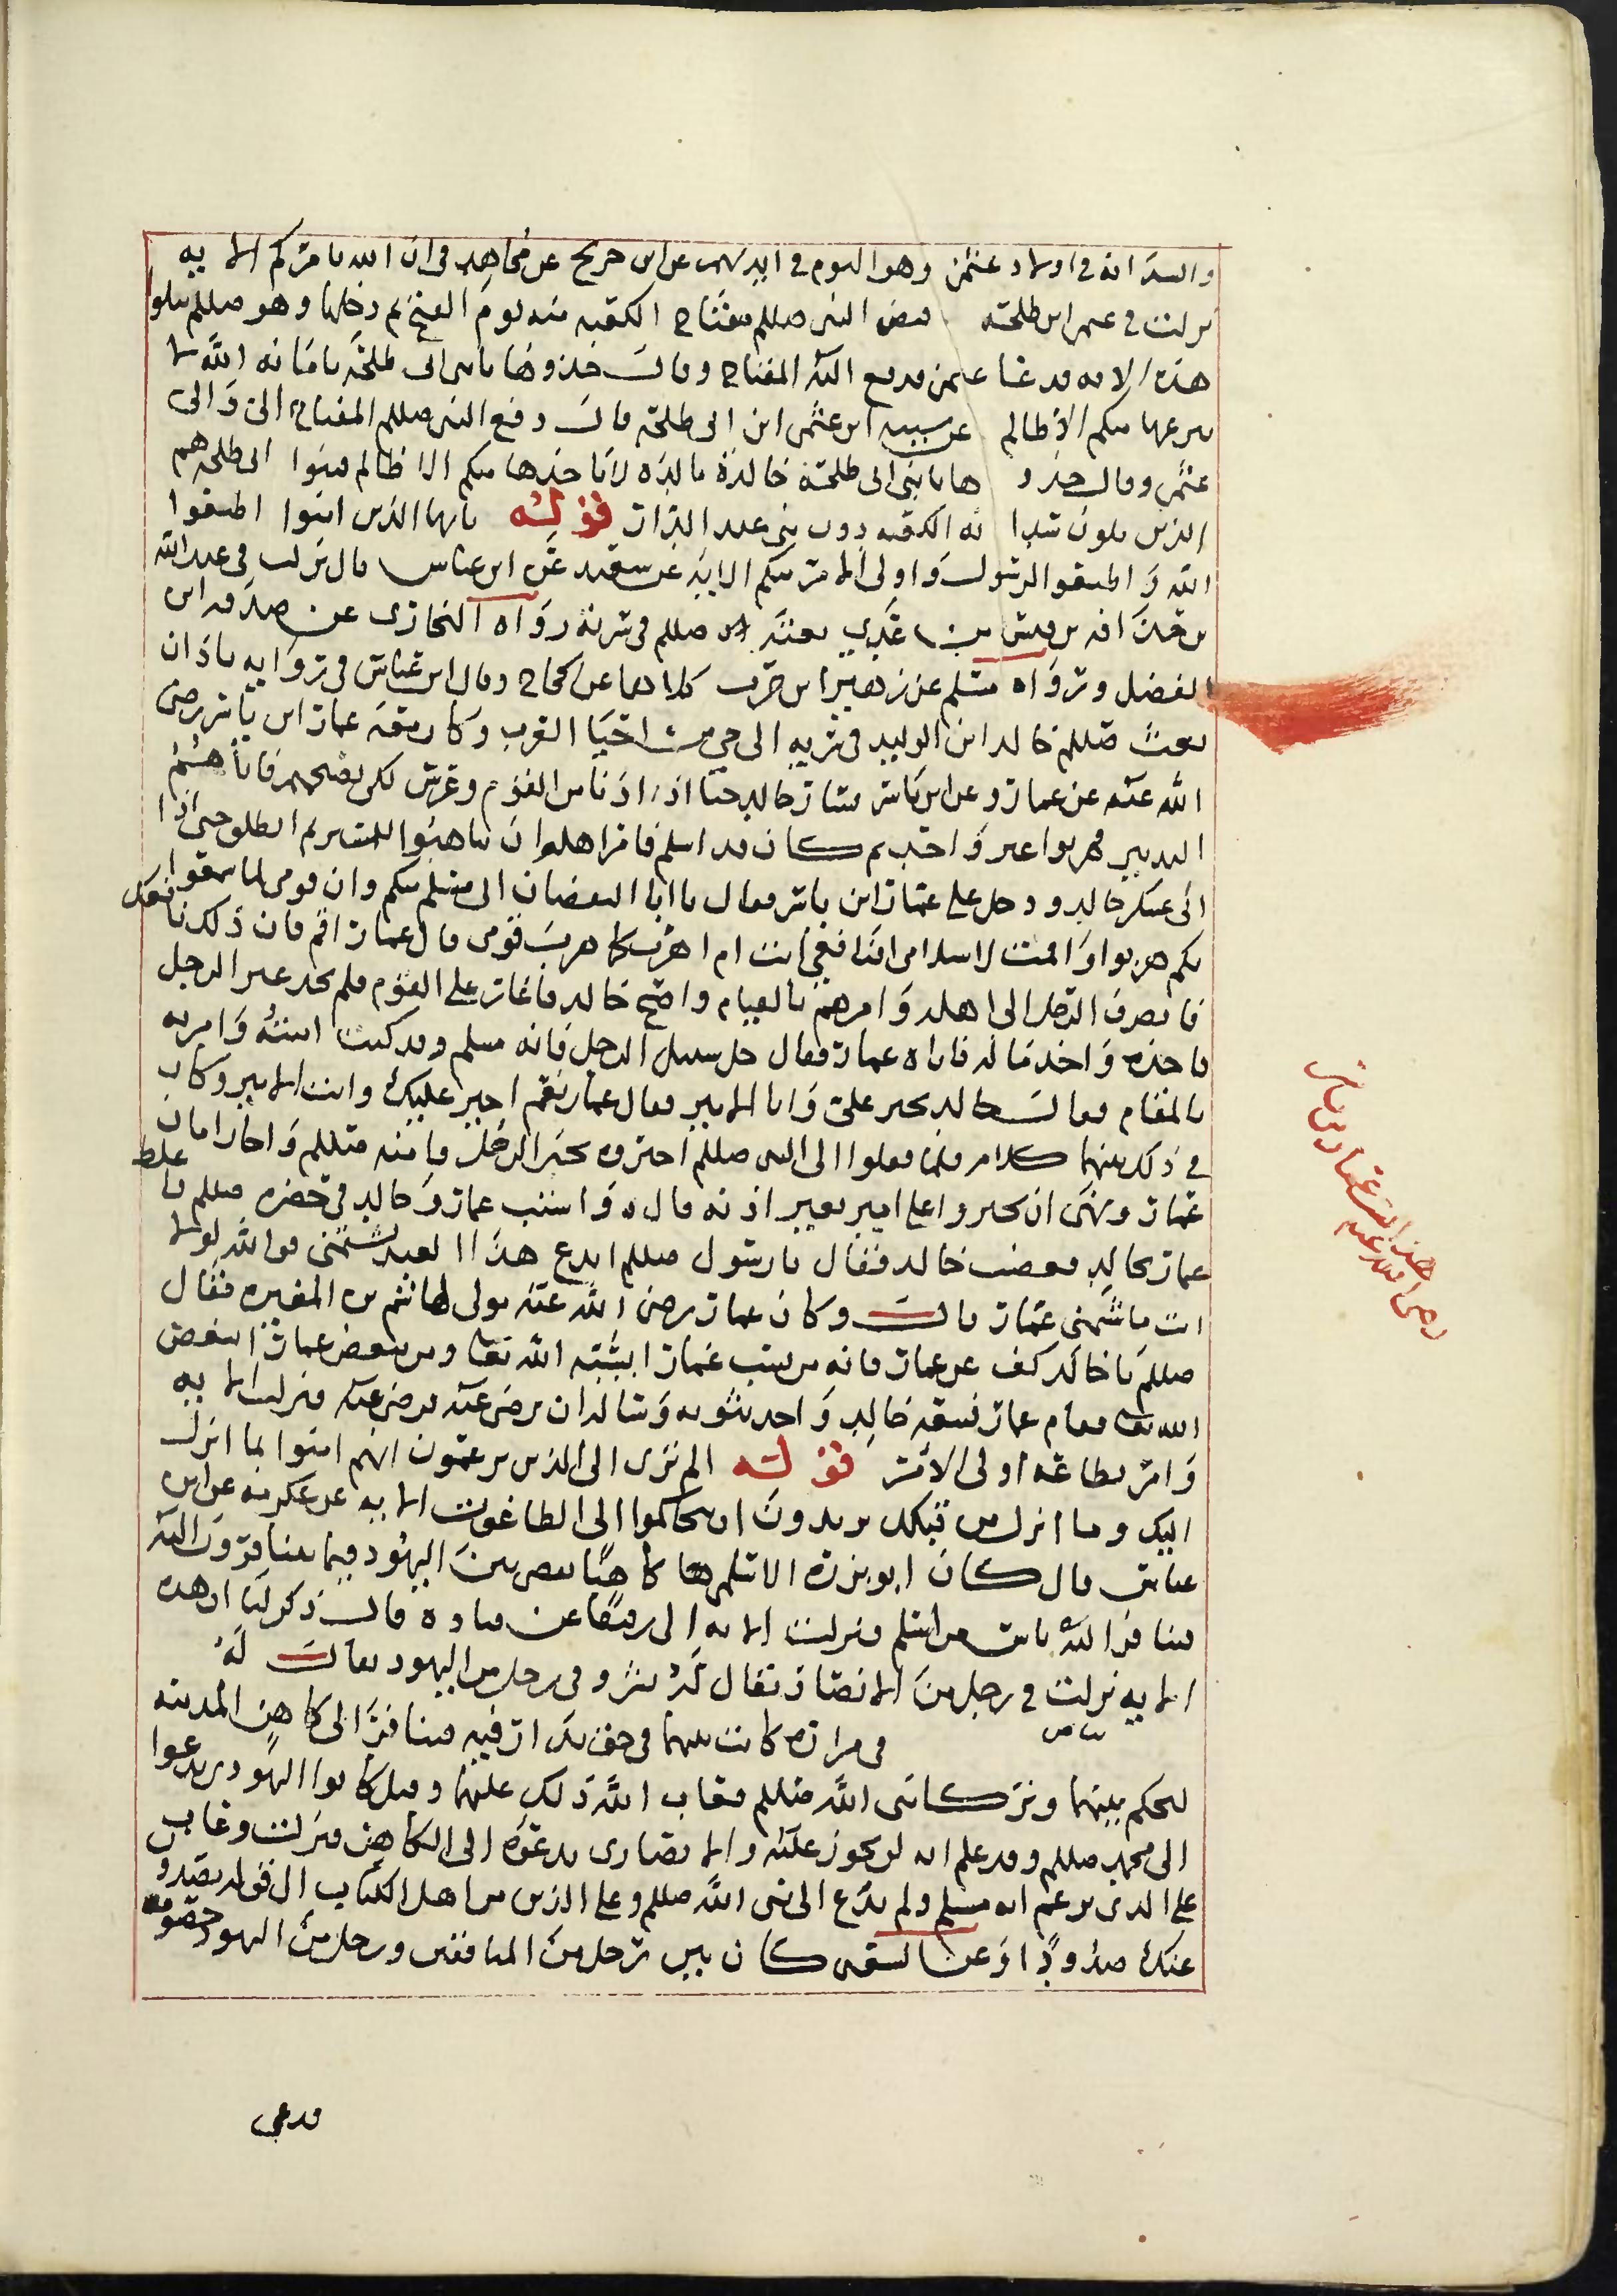 والسدانه في اولاد عثمن وهو اليوم في ايديهم عن ابن جريج عن مجاهد في ان الله يامركم الايه
نزلت في عثمن ابن طلحة قبض النبي صللم مفتاح الكعبه منه يوم الفتح ثم دخلها وهو صللم يتلوا
هذه الايه فدعا عثمن فدفع اليه المفتاح وقال خذوها يا بني ابي طلحة بامانه الله لا
ينزعها منكم الا ظالم عن شيبه ابن عثمن ابن ابي طلحة قال دفع النبي صللم المفتاح الي والى
عثمن وقال خذو ها يا بني ابي طلحة خالدة تالده لا ياخذها منكم الا ظالم فبنوا ابي طلحه هم
الذين يلون سدا نه الكعبه دون بني عبد الدار قوله يايها الذين امنوا اطيعوا
الله و اطيعوا الرسول واولى الامر منكم الايه عن سعيد عن ابن عباس قال نزلت في عبد الله
بن حذافه بن قيس بن عدي بعثه صللم في سريه رواه البخارى عن صدقه ابن
الفضل ورواه مسلم عن زهير ابن حرب كلاهما عن حجاج وقال ابن عباس في روايه باذان
بعث صللم خالد ابن الوليد في سريه الى حي من احيا العرب وكان معه عمار ابن ياسر رضى
الله عنه عن عمار وعن ابن ياسر فسار خالد حتا اذا دنا من القوم وعرس لكي يصبحهم فاتاهم
النذير فهربوا غير واحد ثم كان قد اسلم فامر اهله ان يتاهبوا للمسير ثم انطلق حتى اذا
اتى عسكر خالد ودخل على عمار ابن ياسر فقال يا ابا اليقضان اني مسلم منكم وان قومي لما سمعوا
بكم هربوا واقمت لاسلامى افنافعي انت ام اهرب كما هرب قومى قال عمار اقم فان ذلك نافعك
فانصرف الرجل الى اهله وامرهم بالقيام واصبح خالد فاغار على القوم فلم يجد غير الرجل
فاخذه واخذ ماله فاتاه عمار فقال خل سبيل الرجل فانه مسلم وقد كنت امنته وامرته
بالمقام فقال خالد تجير على وانا الامير فقال عمار نعم اجير عليك وانت الامير وكان
في ذلك بينهما كلام فلما قفلوا الى النبي صللم اخبروه بخبر الرجل فامنه صللم واجاز امان
عمار ونهى ان يجيروا على امير بغير اذنه قال واستب عمار وخالد في حضره صللم فاغلظ
عمار بخالد فغضب خالد فقال يا رسول صللم اتدع هذا العبد يشتمنى فوالله لولا
انت ما شتمنى عمار قال وكان عمار رضى الله عنه مولى لهاشم بن المغيره فقال
صللم يا خالد كف عن عمار فانه من يسب عمارا يسبه الله تعا ومن يبغض عمارا يبغضه
الله تعا فقام عمار فتبعه خالد واخذ بثوبه وساله ان يرضى عنه فرضى عنه فنزلت الايه
وامر بطاعه اولى الامر قوله الم ترى الى الذين يزعمون انهم امنوا بما انزل
اليك وما انزل من قبلك يريدون ان يتحاكموا الى الطاغوت الايه عن عكرمه عن ابن
عباس قال كان ابو بزره الاسلمي كاهنا يقضي بين اليهود فيما يتنافرون اليه
فتنافر اليه ناس من اسلم فنزلت الايه الى توفيقا عن قتاده قال ذكر لنا ان هذه
الايه نزلت في رجل من الانصار يقال له بشر وفى رجل من اليهود يقال له
في مدارة كانت بينهما في حق تدارا فيه فتنافرا الى كاهن المدينه
ليحكم بينهما وتركا نبى الله صللم فعاب الله ذلك عليهما وقيل كانوا اليهودى يدعوا
الى محمد صللم وقد علم انه لن يجوز عليه والانصارى يدعوه الى الكاهن فنزلت وعاب
على الذى يزعم انه مسلم ولم يدع الى نبى الله صللم وعلى الذين من اهل الكتاب الى قوله يصدون
عنك صدودا وعن الشعبى كان بين رجل من المنافقين ورجل من اليهود خصومه
فدعى
هذا عمار بن ياسر
رضى الله عنه